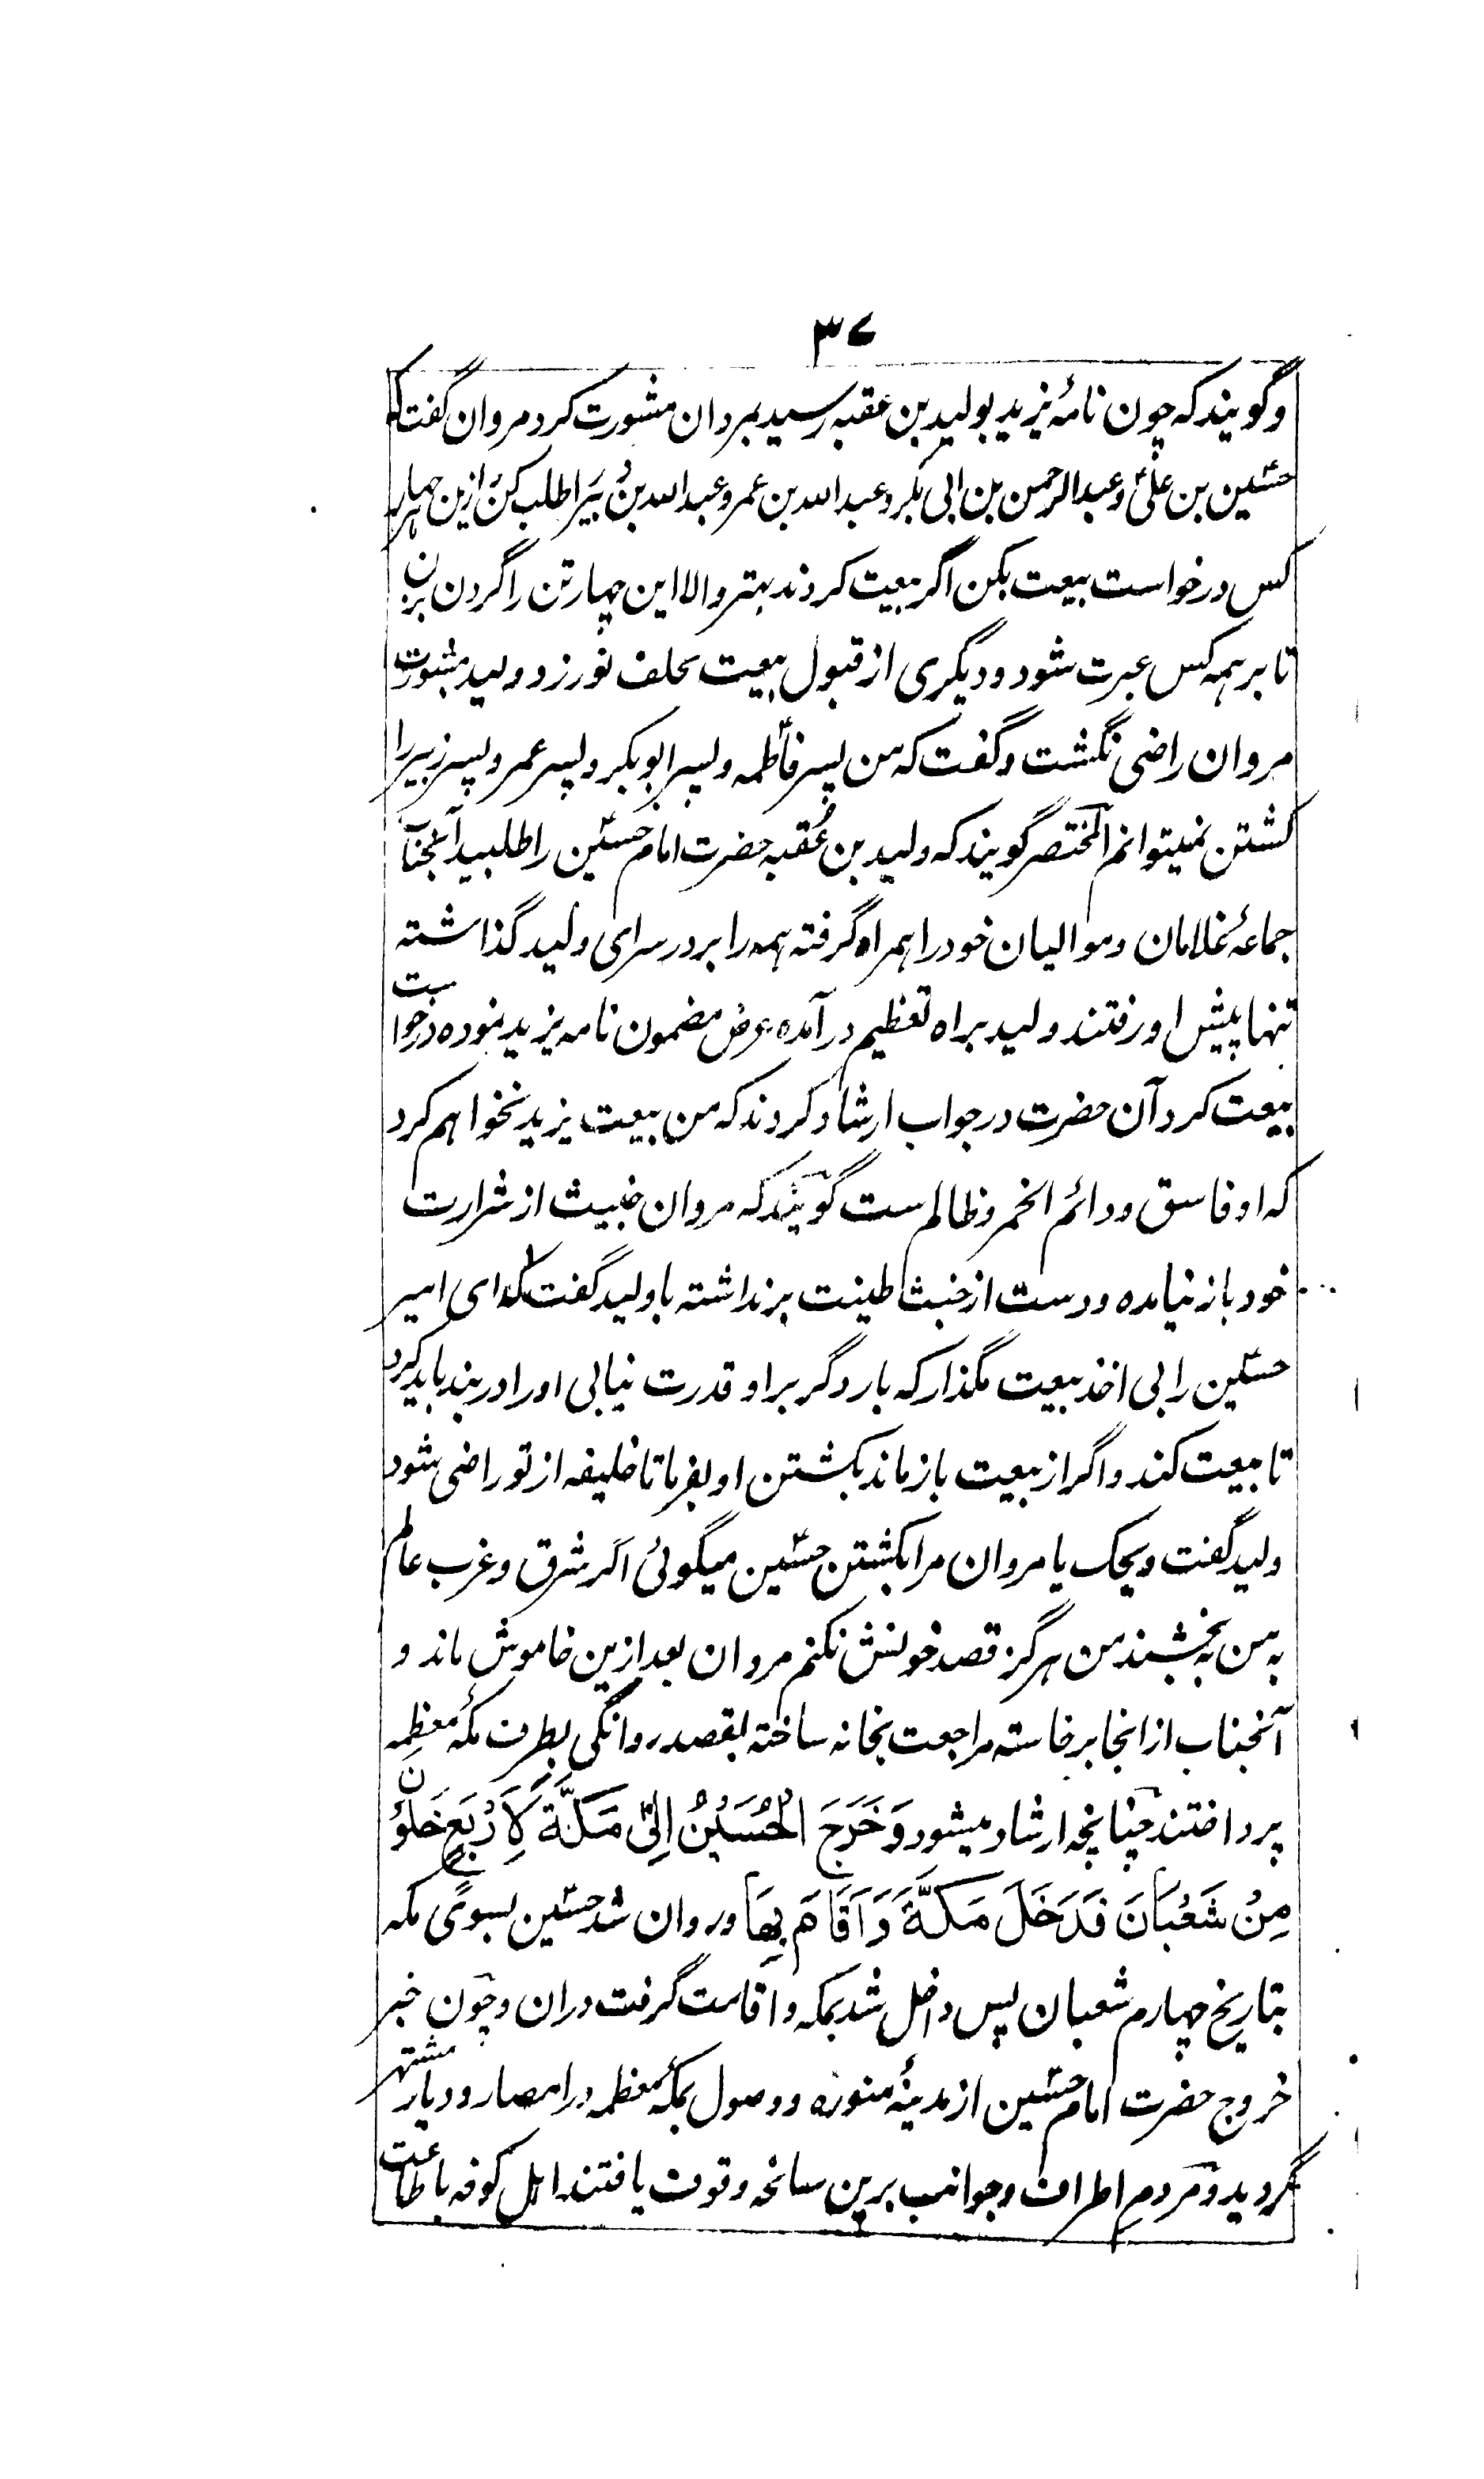 ۳۷
وگویند که چون نامۂ یزید بولید بن عقبه رسید بمروان مشورت کرد مروان گفت که
حسین بن علی و عبدالرحمن بن ابی بکر و عبدالله بن عمر و عبدالله بن زبیر را طلب کن ازین چهار
کس درخواست بیعت بکن اگر بیعت کردند بهتر والا این چهار تن را گردن بزن
تا بر همه کس عبرت شود و دیگری از قبول بیعت تخلف نورزد ولید بمشورت
مروان راضی نگشت وگفت که من پسر فاطمه و پسر ابوبکر و پسر عمر و پسر زبیر را
کشتن نمیتوانم المختصر گویند که ولید بن عُقبه حضرت امام حسین را طلبید آنجناب
جماعۂ غلامان و موالیان خود را همراه گرفته همه را بر در سرای ولید گذاشته
تنها پیش او رفتند ولید براه تعظیم در آمده عرض مضمون نامه یزید نموده درخواست
بیعت کرد آن حضرت در جواب ارشاد کردند که من بیعت یزید نخواهم کرد
که او فاسق و دائم الخمر و ظالم ست گویند که مروان خبیث از شرارت
خود باز نیامده و دست از خبث طینت برنداشته با ولید گفت که ای امیر
حسین را بی اخذ بیعت مگذار که بار دگر بر او قدرت نیابی او را در بند باید کرد
تا بیعت کند و اگر از بیعت باز ماند بکشتن او بفرما تا خلیفه از تو راضی شود
ولید گفت ویحک یا مروان مرا بکشتن حسین میگوئی اگر شرق و غرب عالم
به من بخشند من هرگز قصد خونش نکنم مروان بعد ازین خاموش ماند و
آنجناب از انجا برخاسته مراجعت بخانه ساخته بقصد روانگی بطرف مکۂ معظمه
پرداختند چنانچه ارشاد میشود وَخَرَجَ الْحُسَیْنُ اِلیٰ مَکَّةَ لِاَرْبَعٍ خَلَوْنَ
مِنْ شَعْبَانَ فَدَخَلَ مَکَّةَ وَاَقَامَ بِهَا و روان شد حسین بسوی مکه
بتاریخ چهارم شعبان پس داخل شد بمکه و اقامت گرفت دران و چون خبر
خروج حضرت امام حسین از مدینۂ منوره و وصول بمکۂ معظمه در امصار و دیار مشتهر
گردید و مردم اطراف و جوانب برین سانحه وقوف یافتند اهل کوفه باطاعت